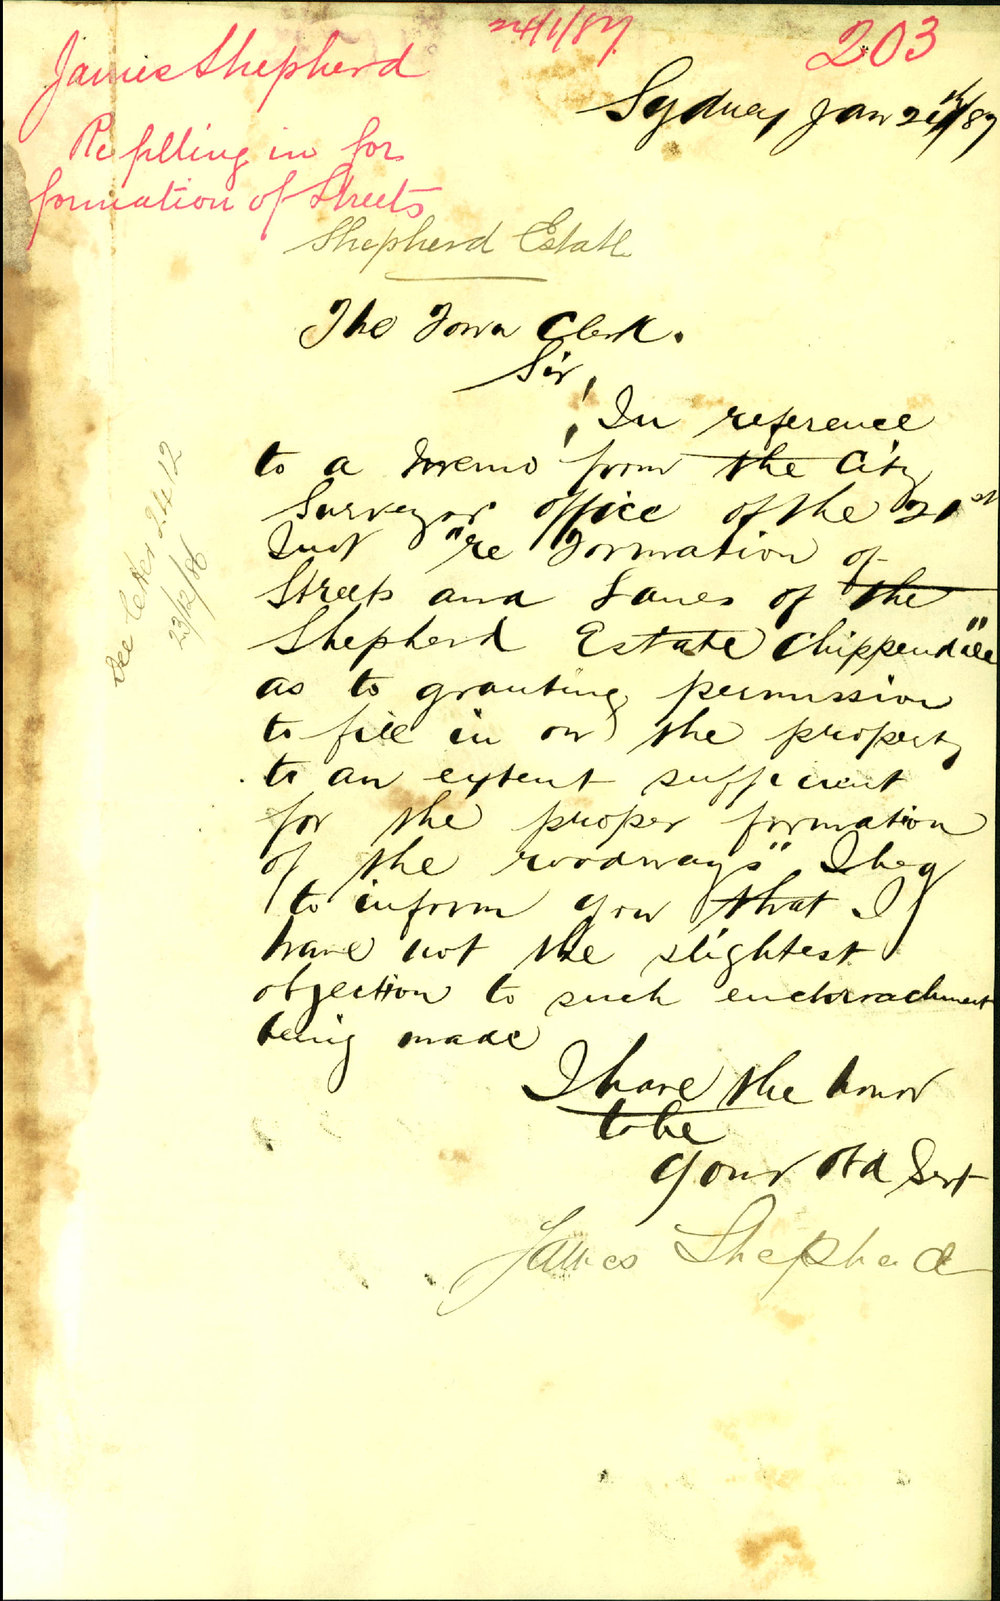 24/1/87
203
James Shepherd
Sydney Jan 21st/87
Re filling in for
formation of Streets
Shepherd Estate
The Town Clerk.
Sir,
In reference
to a memo from the City
Surveyor office of the 21st
Inst "re Formation of
Streets and Lanes of the
Shepherd Estate Chippendale"
as to granting permission
to fill in on the property
to an extent sufficient
for the proper formation
of the roadways" I beg
to inform you that I
have not the slightest
objection to such enchroachment
being made
I have the honor
to be
Your Obd Servt
James Shepherd
See letter 2412
23/12/86